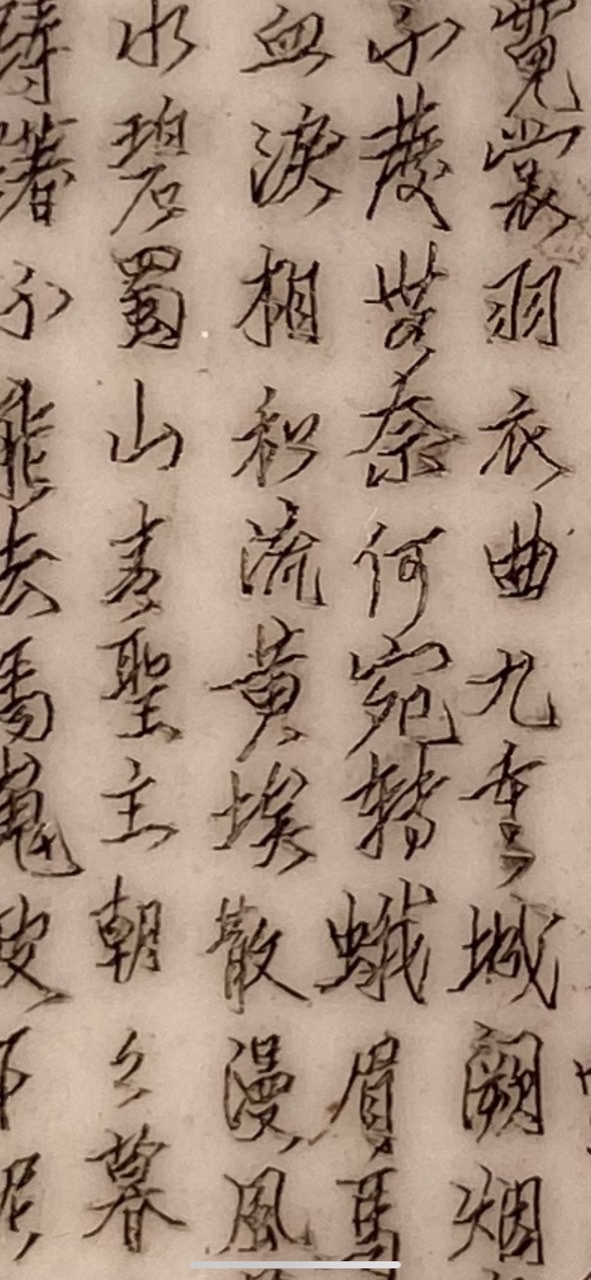 霓裳羽衣曲九重城闕烟
不發無奈何宛轉蛾眉馬
血淚相和流黃埃散漫風
水碧蜀山青聖主朝々暮
躊躇不能去馬嵬坡下泥